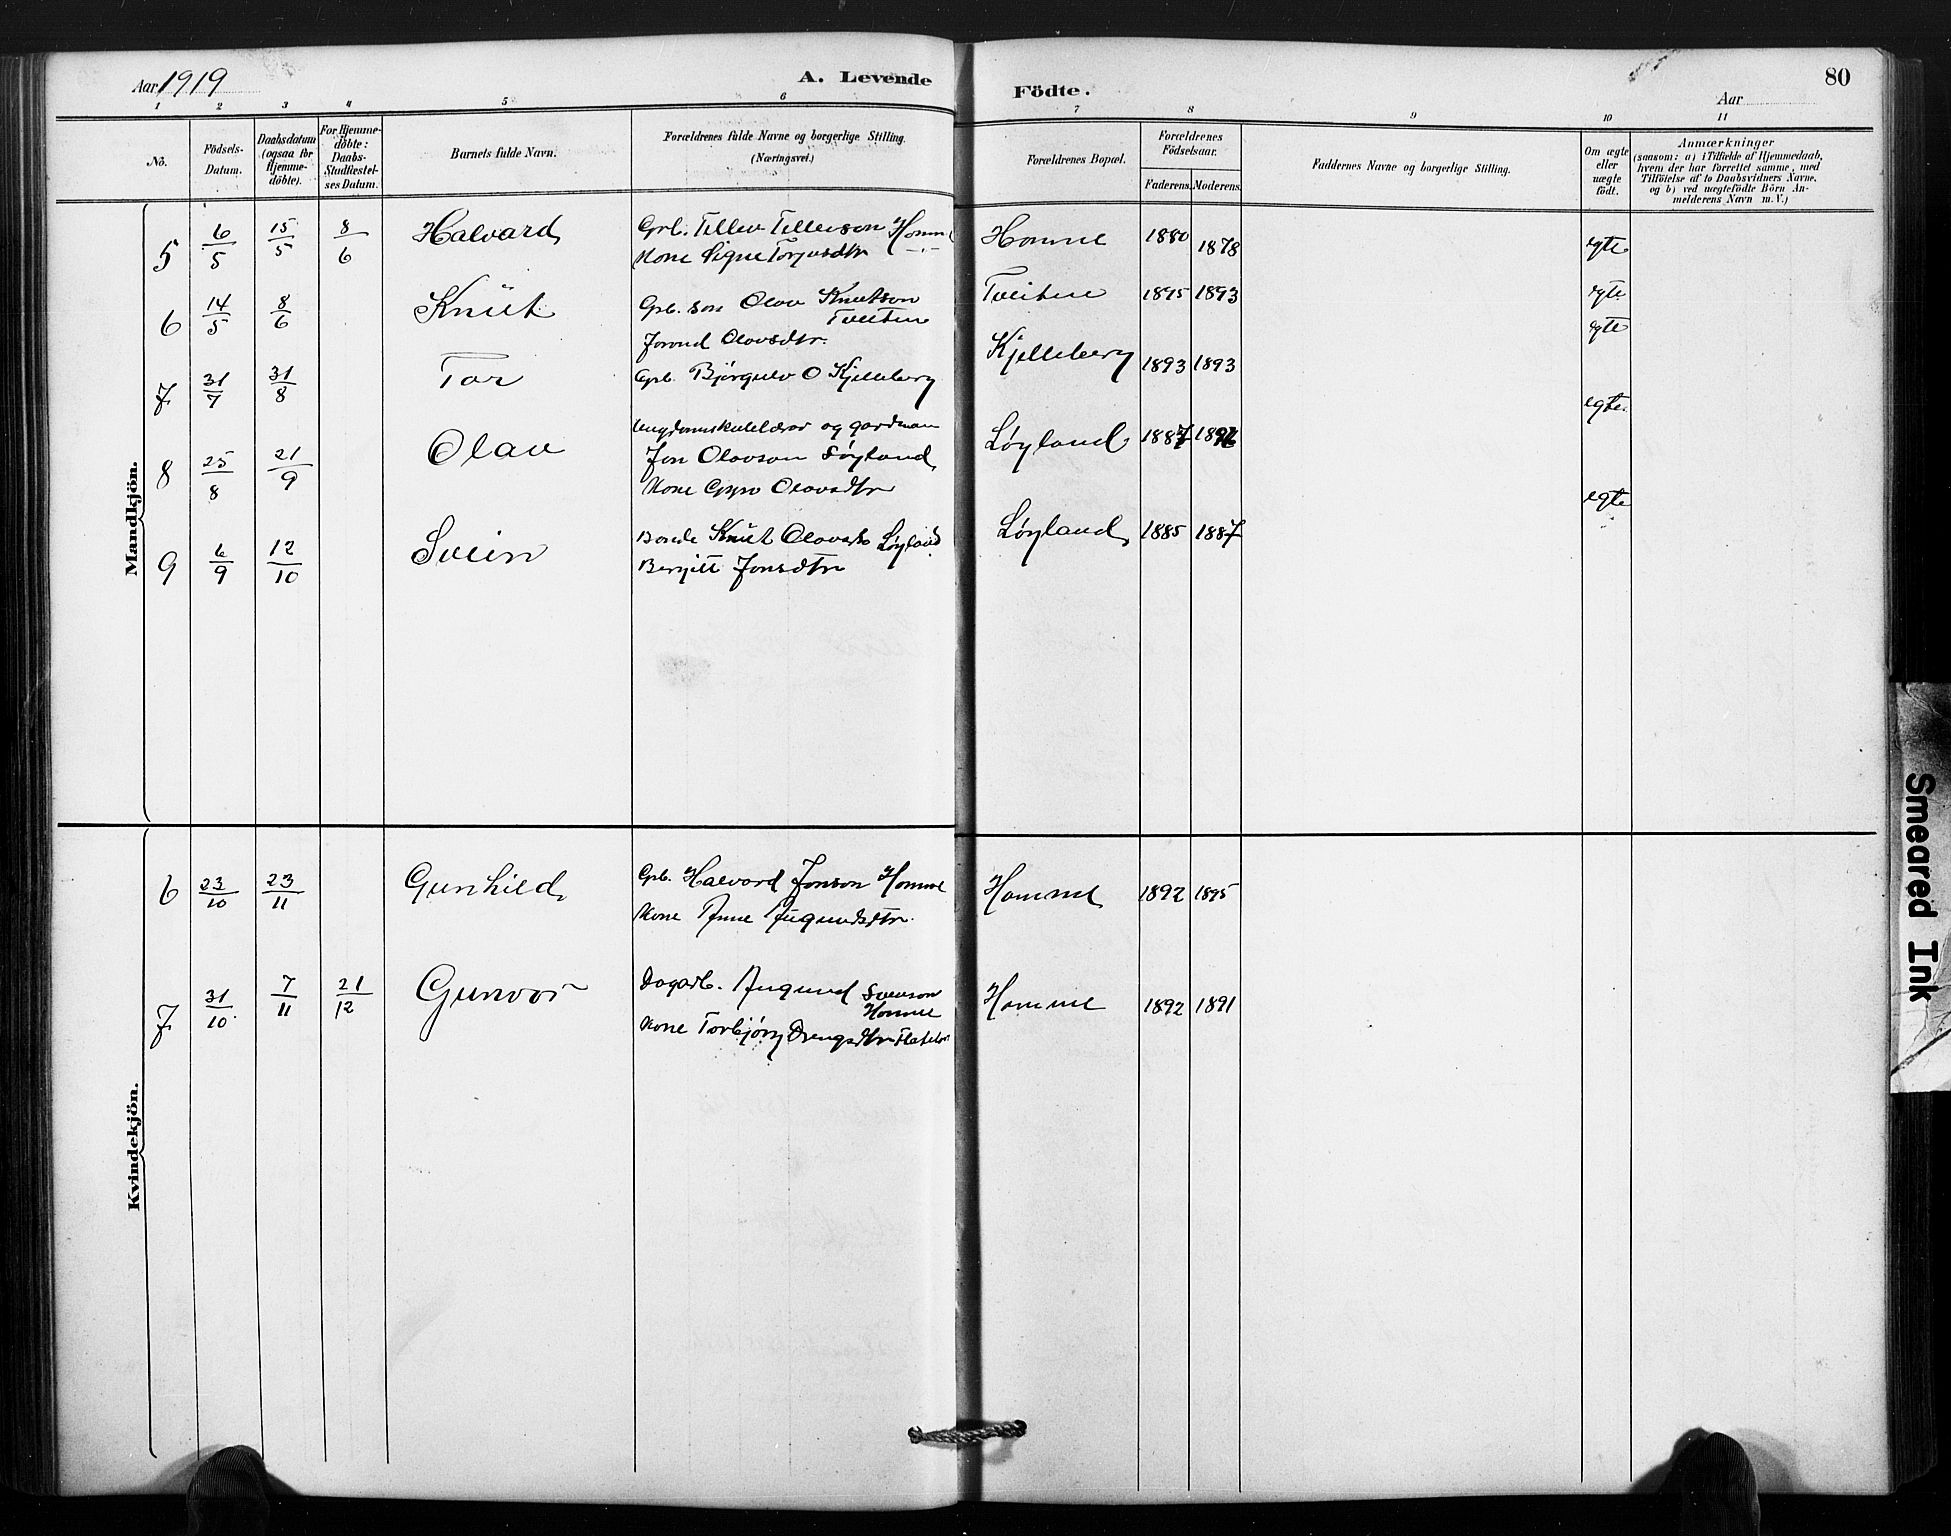 Aar 1919
A. Levende Födte.
Aar
80
1 2 3 4 5 6 7 8 9 10 11
No.
Födsels-Datum.
Daabsdatum (ogsaa for Hjemme-döbte).
For Hjemme-döbte: Daabs-Stadfæstel-ses Datum.
Barnets fulde Navn.
Forældrenes fulde Navne og borgerlige Stilling.
(Næringsvei.)
Forældrenes Bopæl.
Forældrenes Födselsaar.
Faderens. Moderens.
Faddernes Navne og borgerlige Stilling.
Om ægte eller uægte födt.
Anmærkninger
(saasom: a) i Tilfælde af Hjemmedaab,
hvem der har forrettet samme, med
Tilföielse af to Daabsvidners Navne,
og b) ved uægtefödte Börn An-
melderens Navn m. V.)
Mandkjön.
5 6/5 15/5 8/6 Halvard Grb. Tellev Tellevson Homme Homme 1880 1878 egte
Kone Signe Torjusdtr —"—
6 14/5 8/6 Knut Grb. son Olav Knutson Tveiten Tveiten 1895 1893 egte
Jorund Olavsdtr.
7 31/7 31/8 Tor Grb. Bjørgulv O Kjelleberg Kjelleberg 1893 1893 egte
8 25/8 21/9 Olav Ungdomskulelærar og gardman Løyland 1887 egte.
Jon Olavson Løyland
Kone Gyro Olavsdtr
9 6/9 12/10 Svein Bonde Knut Olavson Løyland Løyland 1885 1887 egte
Bergitt Jonsdtr
Kvindekjön.
6 23/10 23/11 Gunhild Grb. Halvard Jonson Homme Homme 1892 1895
Kone Anne Augundsdtr.
7 31/10 7/11 21/12 Gunvor Dagarb. Augund Sveinson Homme Homme 1892 1891
Kone Torbjørg Drengsdtr
Smeared Ink